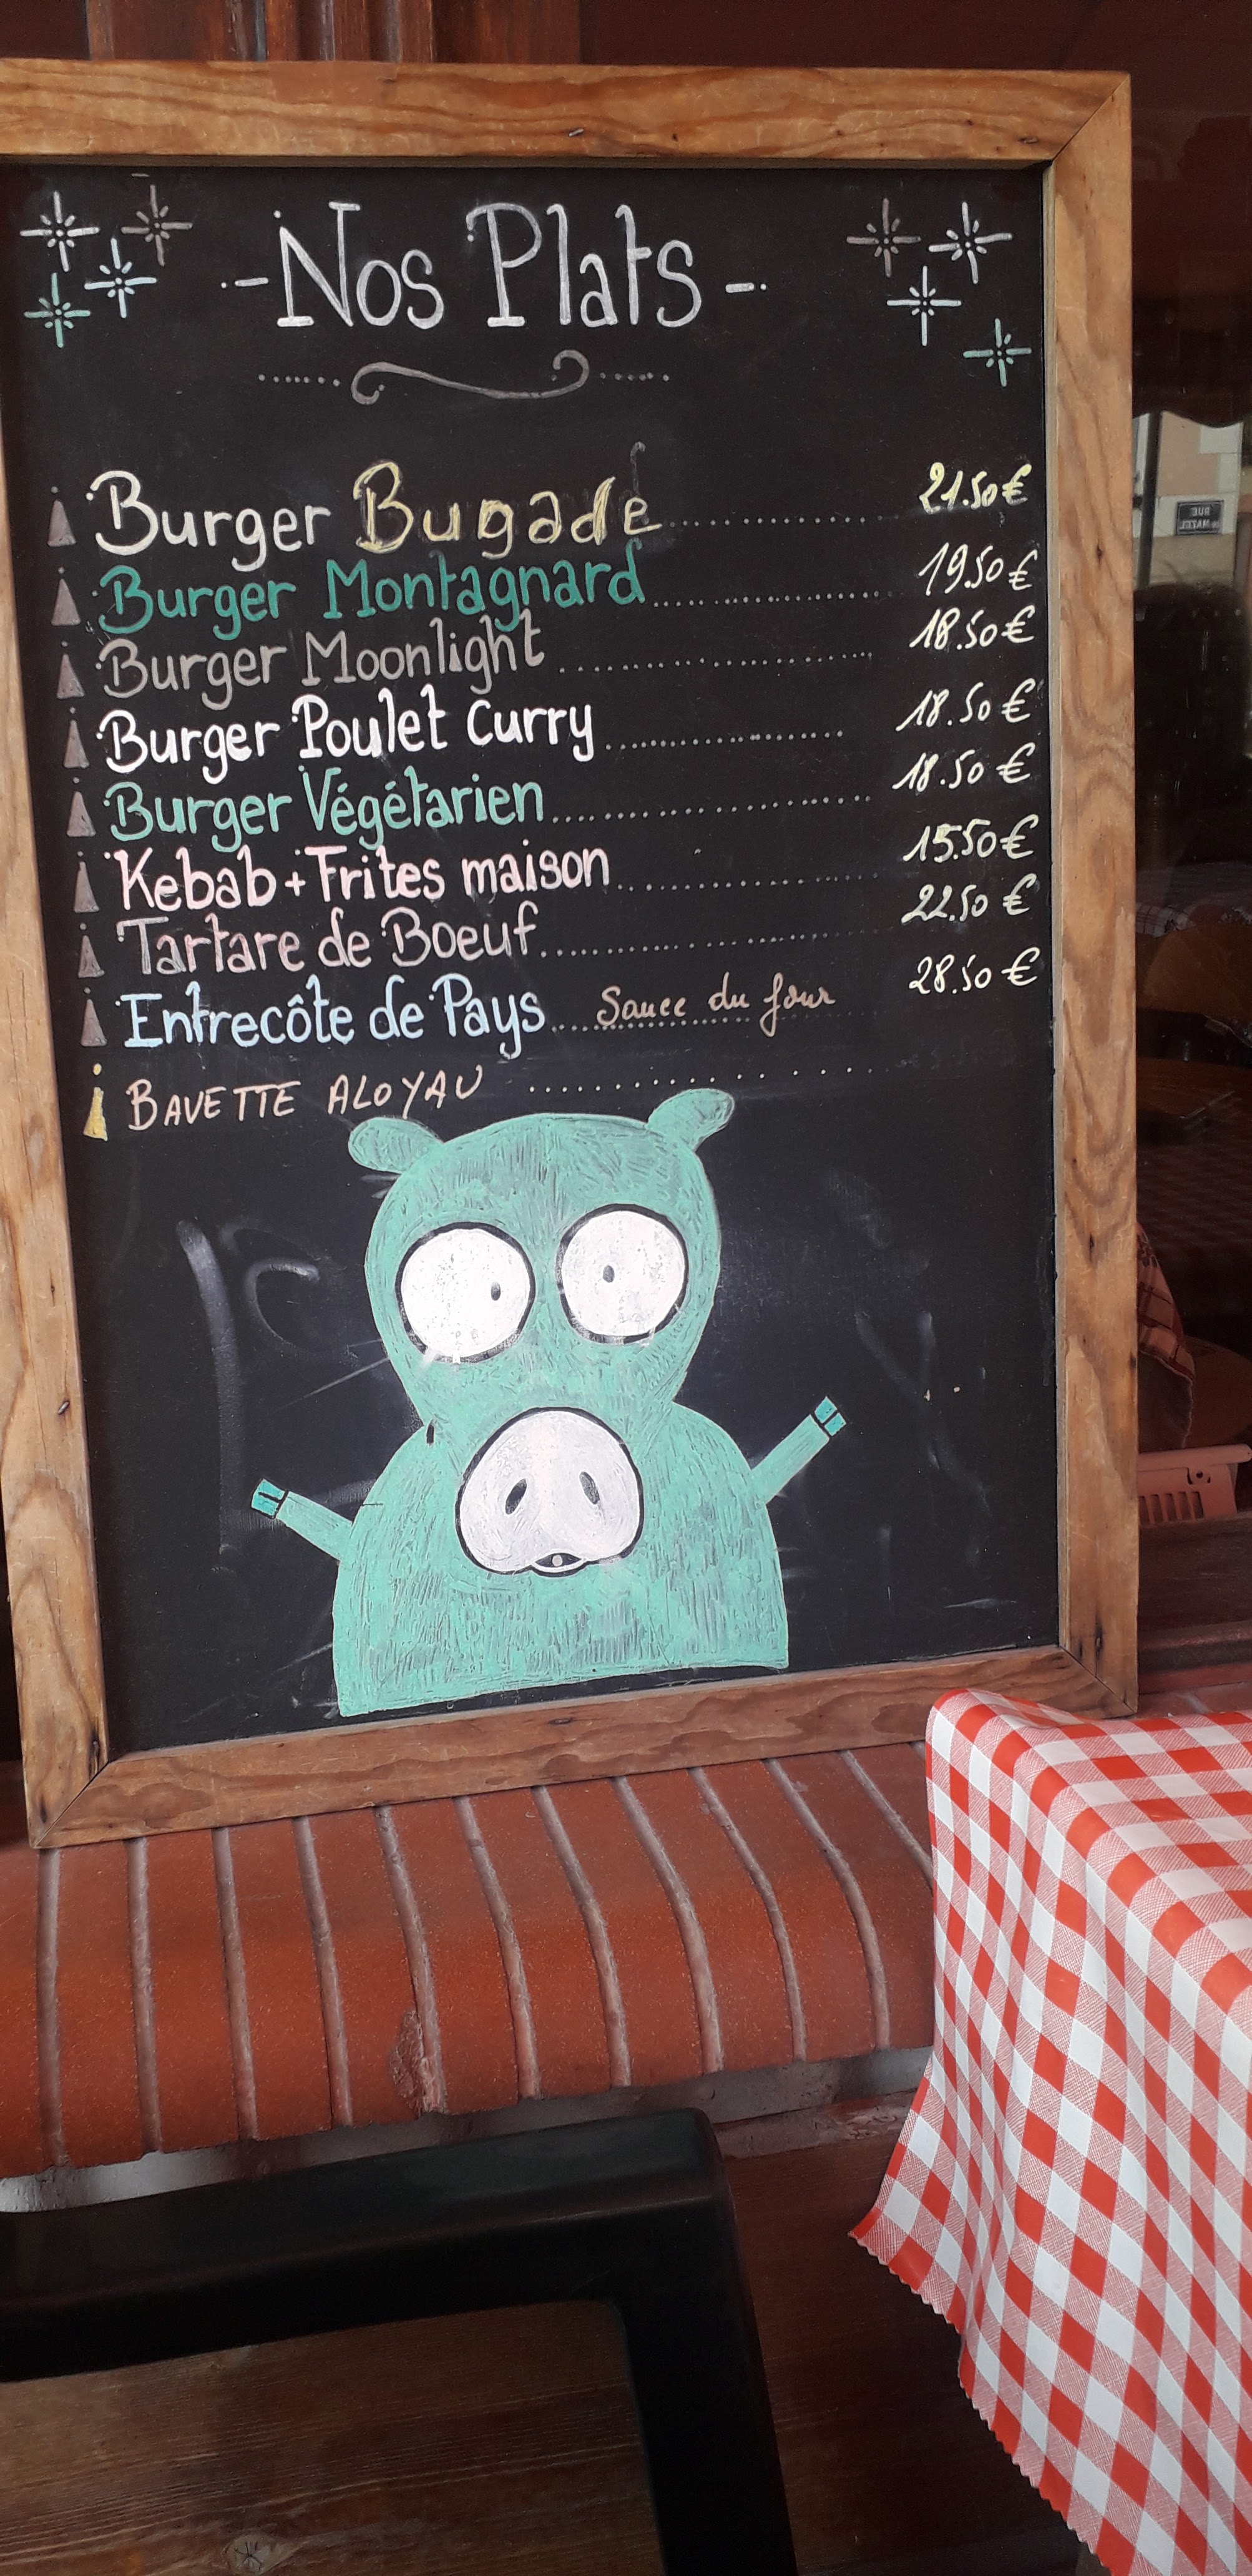 -Nos Plats-
Burger Bugade ............... 21.50€
Burger Montagnard ............... 19.50€
Burger Moonlight ............... 18.50€
Burger Poulet Curry ............... 18.50€
Burger Végétarien ............... 18.50€
Kebab + Frites maison ............... 15.50€
Tartare de Boeuf ............... 22.50€
Entrecôte de Pays ... Sauce du jour 28.50€
BAVETTE ALOYAU ...............
RUE